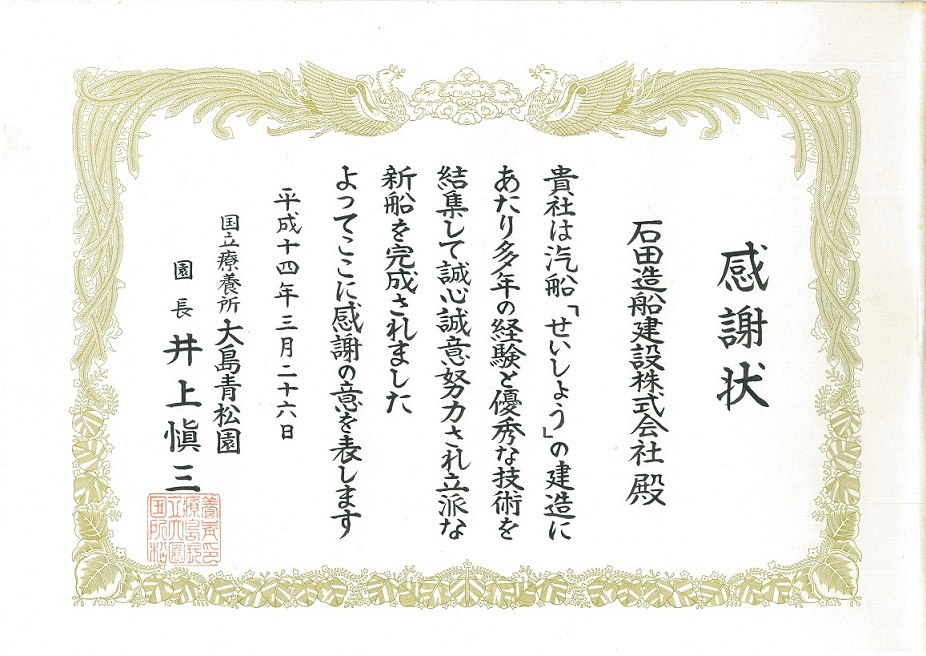 感謝状
石田造船建設株式会社 殿
貴社は汽船「せいしょう」の建造に
あたり多年の経験と優秀な技術を
結集して誠心誠意努力され立派な
新船を完成されました
よってここに感謝の意を表します
平成十四年三月二十六日
国立療養所 大島青松園
園長 井上愼三